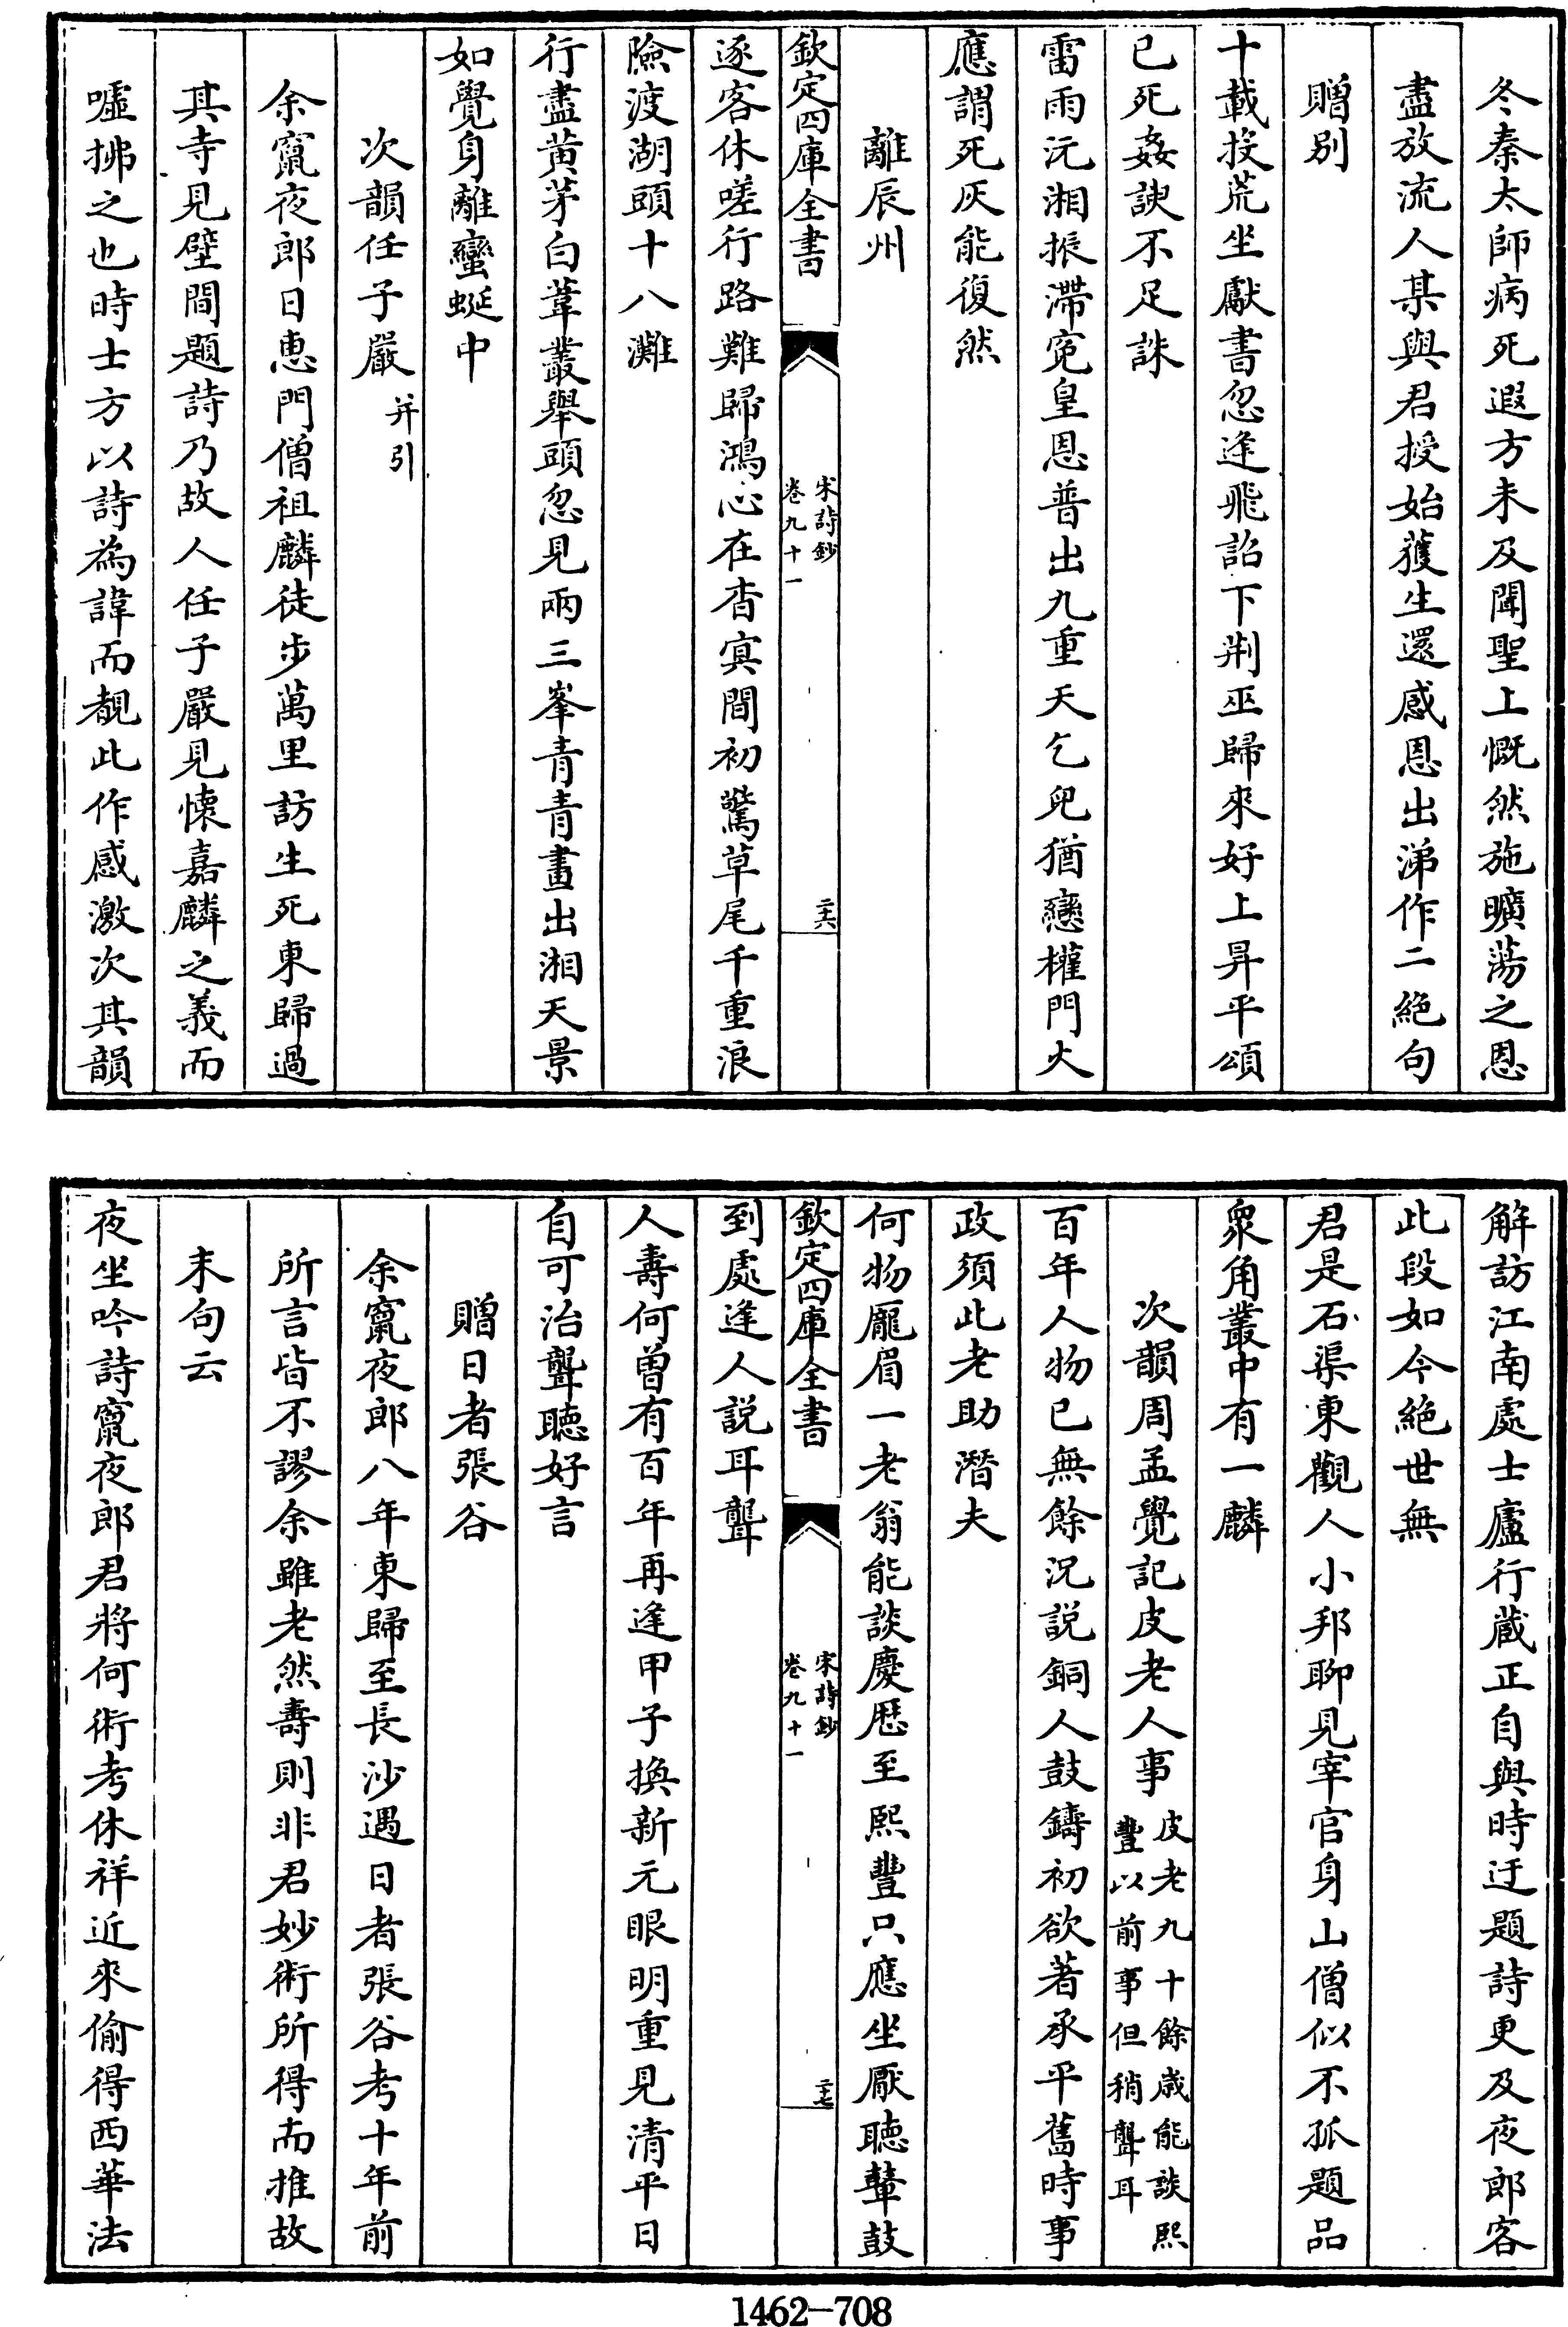 冬秦太師病死遐方未及聞聖上慨然施曠蕩之恩
盡放流人某與君授始獲生還感恩出涕作二絶句
贈别
十載投荒坐獻書忽逢飛詔下荆巫歸來好上昇平頌
已死姦諛不足誅
雷雨沅湘振滯寃皇恩普出九重天乞兒猶戀權門火
應謂死灰能復然
離辰州
欽定四庫全書
宋詩鈔
卷九十一
二六
逐客休嗟行路難歸鴻心在杳冥間初驚草尾千重浪
險渡湖頭十八灘
行盡黄茅白葦叢舉頭忽見兩三峯青青畫出湘天景
如覺身離蠻蜒中
次韻任子嚴并引
余竄夜郎日惠門僧祖麟徒步萬里訪生死東歸過
其寺見壁間題詩乃故人任子嚴見懷嘉麟之義而
噓拂之也時士方以詩為諱而覩此作感激次其韻
解訪江南處士廬行蔵正自與時迂題詩更及夜郎客
此段如今絶世無
君是石渠東觀人小邦聊見宰官身山僧似不孤題品
衆角叢中有一麟
次韻周孟覺記皮老人事皮老九十餘歳能談熙
豐以前事但稍聾耳
百年人物已無餘況説銅人鼓鑄初欲著承平舊時事
政須此老助潛夫
何物龎眉一老翁能談慶厯至熙豐只應坐厭聴鼙鼓
欽定四庫全書
宋詩鈔
卷九十一
二七
到處逢人説耳聾
人壽何曾有百年再逢甲子換新元眼明重見清平日
自可治聾聴好言
贈日者張谷
余竄夜郎八年東歸至長沙遇日者張谷考十年前
所言皆不謬余雖老然壽則非君妙術所得而推故
末句云
夜坐吟詩竄夜郎君將何術考休祥近來偷得西華法
1462-708